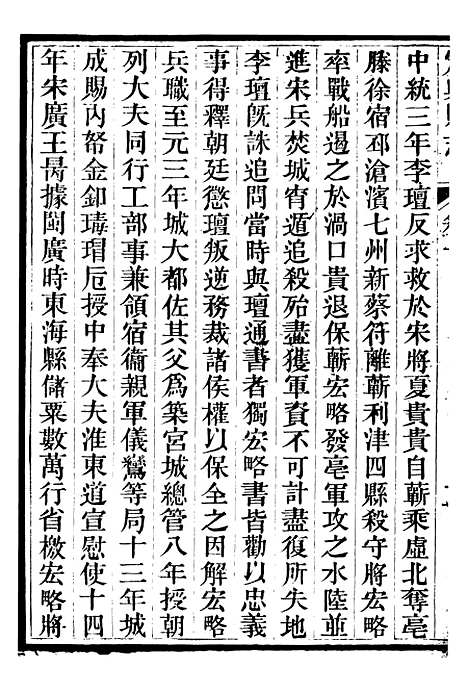 中統三年李璮反求救於宋將夏貴貴自蘄乘虛北奪亳
滕徐宿邳滄濱七州新蔡符離蘄利津四縣殺守將宏略
率戰船遏之於渦口貴退保蘄宏略發亳軍攻之水陸並
進宋兵焚城宵遁追殺殆盡獲軍資不可計盡復所失地
李璮旣誅追問當時與璮通書者獨宏略書皆勸以忠義
事得釋朝廷懲璮叛逆務裁諸侯權以保全之因解宏略
兵職至元三年城大都佐其父爲築宮城總管八年授朝
列大夫同行工部事兼領宿衞親軍儀鸞等局十三年城
成賜內帑金釦瑇瑁卮授中奉大夫淮東道宣慰使十四
年宋廣王昺據閩廣時東海縣儲粟數萬行省檄宏略將